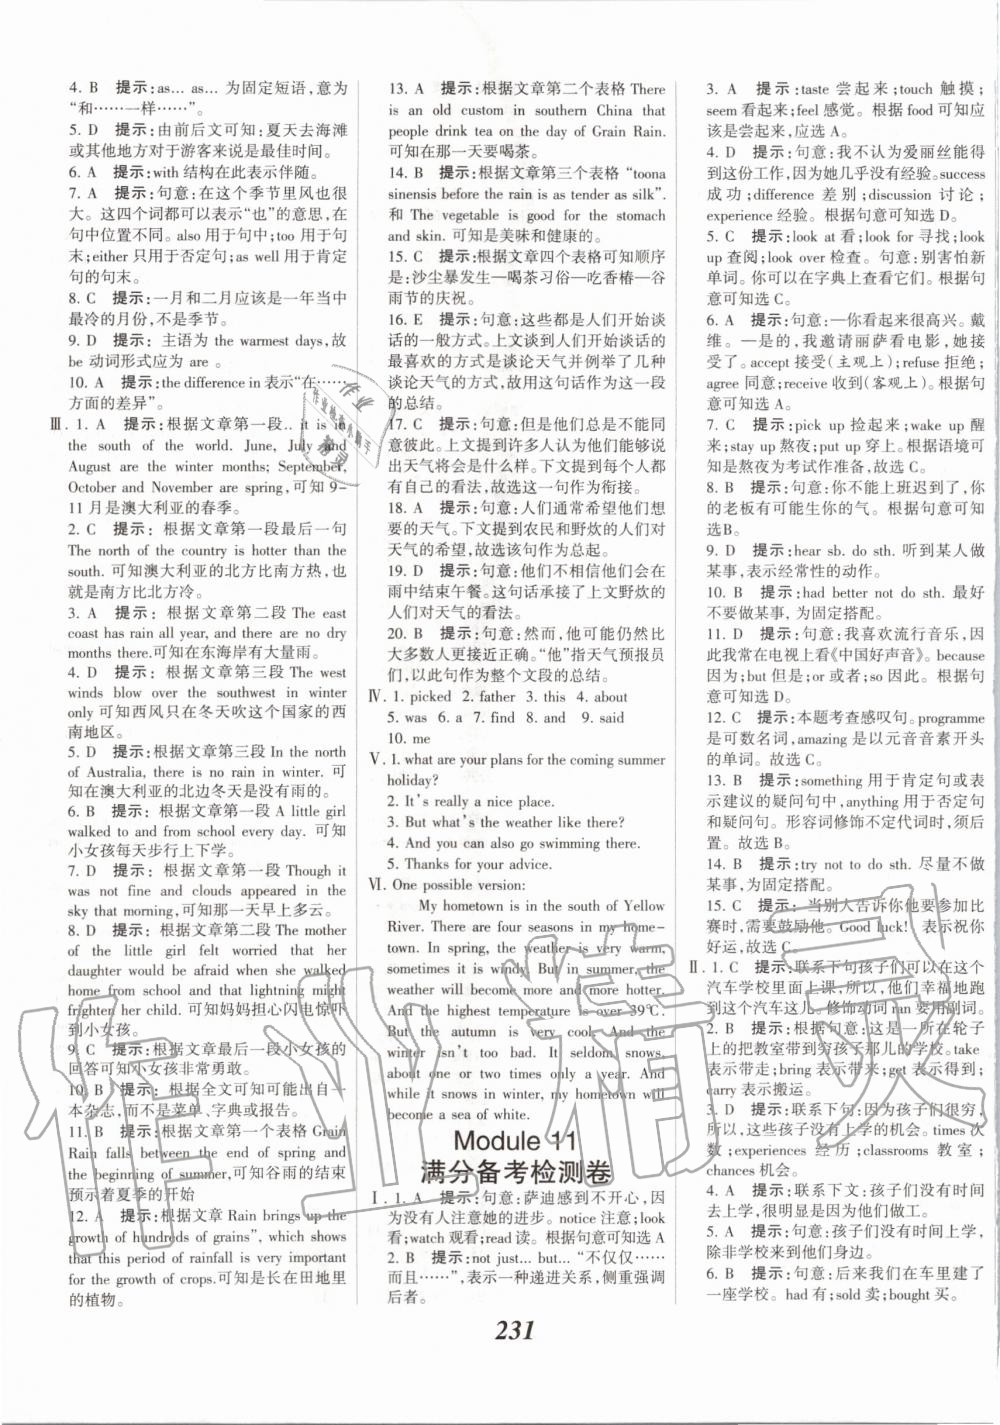 4. B　提示:as... as... 为固定短语,意为
“和……一样……”。
5. D　提示:由前后文可知:夏天去海滩
或其他地方对于游客来说是最佳时间。
6. A　提示:with 结构在此表示伴随。
7. A　提示:句意:在这个季节里风也很
大。这四个词都可以表示“也”的意思,在
句中位置不同。also 用于句中;too 用于句
末;either 只用于否定句;as well 用于肯定
句的句末。
8. C　提示:一月和二月应该是一年当中
最冷的月份,不是季节。
9. D　提示: 主语为 the warmest days,故
be 动词形式应为 are 。
10. A　提示:the difference in 表示“在……
方面的差异”。
Ⅲ. 1. A　提示:根据文章第一段.. it is in
the south of the world. June, July and
August are the winter months; September,
October and November are spring,可知 9-
11 月是澳大利亚的春季。
2. C　提示: 根据文章第一段最后一句
The north of the country is hotter than the
south. 可知澳大利亚的北方比南方热,也
就是南方比北方冷。
3. A　提示: 根据文章第二段 The east
coast has rain all year, and there are no dry
months there.可知在东海岸有大量雨。
4. D　提示: 根据文章第二段 The west
winds blow over the southwest in winter
only 可知西风只在冬天吹这个国家的西
南地区。
5. D　提示:根据文章第三段 In the north
of Australia, there is no rain in winter. 可
知在澳大利亚的北边冬天是没有雨的。
6. B　提示:根据文章第一段 A little girl
walked to and from school every day. 可知
小女孩每天步行上下学。
7. D　提示:根据文章第一段 Though it
was not fine and clouds appeared in the
sky that morning,可知那一天早上多云。
8. D　提示:根据文章第二段 The mother
of the little girl felt worried that her
daughter would be afraid when she walked
home and that the lightning might
frighten her child. 可知妈妈担心闪电惊吓
到小女孩。
9. C　提示:根据文章最后一段小女孩的
回答可知小女孩非常勇敢。
10. B　提示:根据全文可知出自一
本杂志,而不是菜单、字典或报告。
11. B　提示:根据第一个表格 Grain
Rain falls between the end of spring and
the beginning of summer,可知谷雨的结束
预示着夏季的开始
12. A　提示:根据文章 Rain brings up the
growth of hundreds of grains”, which shows
that this period of rainfall is very important
for the growth of crops.可知是长在田地里
的植物。
13. A　提示:根据文章第二个表格 There
is an old custom in southern China that
people drink tea on the day of Grain Rain.
可知在那一天要喝茶。
14. B　提示:根据第三个表格 “toona
sinensis before the rain is as tender as silk”.
和 The vegetable is good for the stomach
and skin. 可知是美味和健康的。
15. C　提示:根据文章四个表格可知顺序
是:沙尘暴发生—喝茶习俗—吃香椿—谷
雨节的庆祝。
16. E　提示:句意:这些都是人们开始谈
话的一般方式。上文谈到人们开始谈话
的最喜欢的方式是谈论天气并例举了几种
谈论天气的方式,所以这句话作为这一段
的总结。
17. C　提示:句意:但是他们总是不能同
意彼此。上文提到为了让他们能够继续
说出天气将会是什么样的。下文提到每个人都
有自己的看法,故选这一句作为衔接。
18. A　提示:句意:人们通常希望他们想
要的天气。下文提到农民和野炊的人们对
于天气的希望,故选该句作为总起。
19. D　提示:句意:他们不相信他们会在
雨中结束午餐。这句话承接了上文野炊的
人们对于天气的看法。
20. B　提示:句意:然而,他可能仍然比
大多数人更接近正确。“他”指天气预报员
们,以此句作为整个文段的总结。
Ⅳ. 1. picked　2. father　3. this　4. about
5. was　6. a　7. find　8. and　9. said
10. me
Ⅴ. 1. what are your plans for the coming summer
holiday?
2. It's really a nice place.
3. But what's the weather like there?
4. And you can also go swimming there.
5. Thanks for your advice.
Ⅵ. One possible version:
My hometown is in the south of Yellow
River. There are four seasons in my home-
town. In spring, the weather is very warm,
sometimes it is windy. But in summer, the
weather will become more and more hotter.
And the highest temperature is over 39℃.
But the autumn is very cool. And the
winter isn't too bad. It seldom snows,
about one or two times only a year. And
while it snows in winter, my hometown will
become a sea of white.
Module 11
满分备考检测卷
Ⅰ. 1. A　提示:句意:萨迪感到不开心,因
为没有人注意她的进步。notice 注意;look
看;watch 观看;read 读。故选 A
2. B　提示:not just... but... “不仅仅……
而且……”,表示一种递进关系,侧重强调
后者。
3. A　提示:taste 尝起来;touch 触摸;
seem 看起来;feel 感觉。根据 food 可知应
该是尝起来,应选 A。
4. D　提示:句意:我不认为爱丽丝能得
到这份工作,因为她几乎没有经验。success
成功;difference 差别;discussion 讨论;
experience 经验。根据句意可知选 D。
5. C　提示:look at 看;look for 寻找;look
up 查阅;look over 检查。句意:别害怕新
单词。你可以在字典上查看它们。根据句
意可知选 C。
6. A　提示:句意:—你看起来很高兴。戴
维。—是的,我邀请丽萨看电影,她接
受了。accept 接受(主观上);refuse 拒绝;
agree 同意;receive 收到(客观上)。根据
句意可知选 A。
7. C　提示:pick up 捡起来;wake up 醒
来;stay up 熬夜;put up 穿上。根据语境可
知是熬夜为考试作准备,故选 C。
8. B　提示:句意:你不能上班迟到了,你
的老板有可能生你的气。根据句意可知
选B。
9. D　提示:hear sb. do sth. 听到某人做
某事,表示经常性的动作。
10. B　提示:had better not do sth. 最好
不要做某事, 为固定搭配。
11. D　提示:句意:我喜欢流行音乐,因
此我常在电视上看《中国好声音》。because
因为;but 但是;or 或者;so 所以。根据句
意可知选 D。
12. C　提示:本题考查感叹句。programme
是可数名词,amazing 是以元音音素开头
的单词。故选 C。
13. B　提示:something 用于肯定句或表
示建议的疑问句中,anything 用于否定句
和疑问句。形容词修饰不定代词时,须后
置。故选 B。
14. B　提示:try not to do sth. 尽量不做
某事,为固定搭配。
15. C　提示: 当别人告诉你他要参加比
赛时,需要鼓励他。Good luck! 表示祝你
好运,故选 C。
Ⅱ. 1. C　提示:联系下句孩子们可以在这个
汽车学校里面上课,所以,他们幸福地跑
到这个汽车这儿。修饰动词 ran 要用副词。
2. B　提示:根据句意:这是一所在轮子
上的把教室带到穷孩子那儿的学校。take
表示带走;bring 表示带来;get 表示得到;
carry 表示搬运。
3. D　提示:联系下句:因为孩子们很穷,
所以,他们没有上学的机会。times 次
数;experiences 经历;classrooms 教室;
chances 机会。
4. A　提示:联系下文:孩子们没有时间
去上学,很明显是因为他们做工。
5. A　提示:句意:孩子们没有时间上学,
除非学校来到他们身边。
6. B　提示:句意:后来他们在车里建了
一座学校。had 有;sold 卖;bought 买。
231